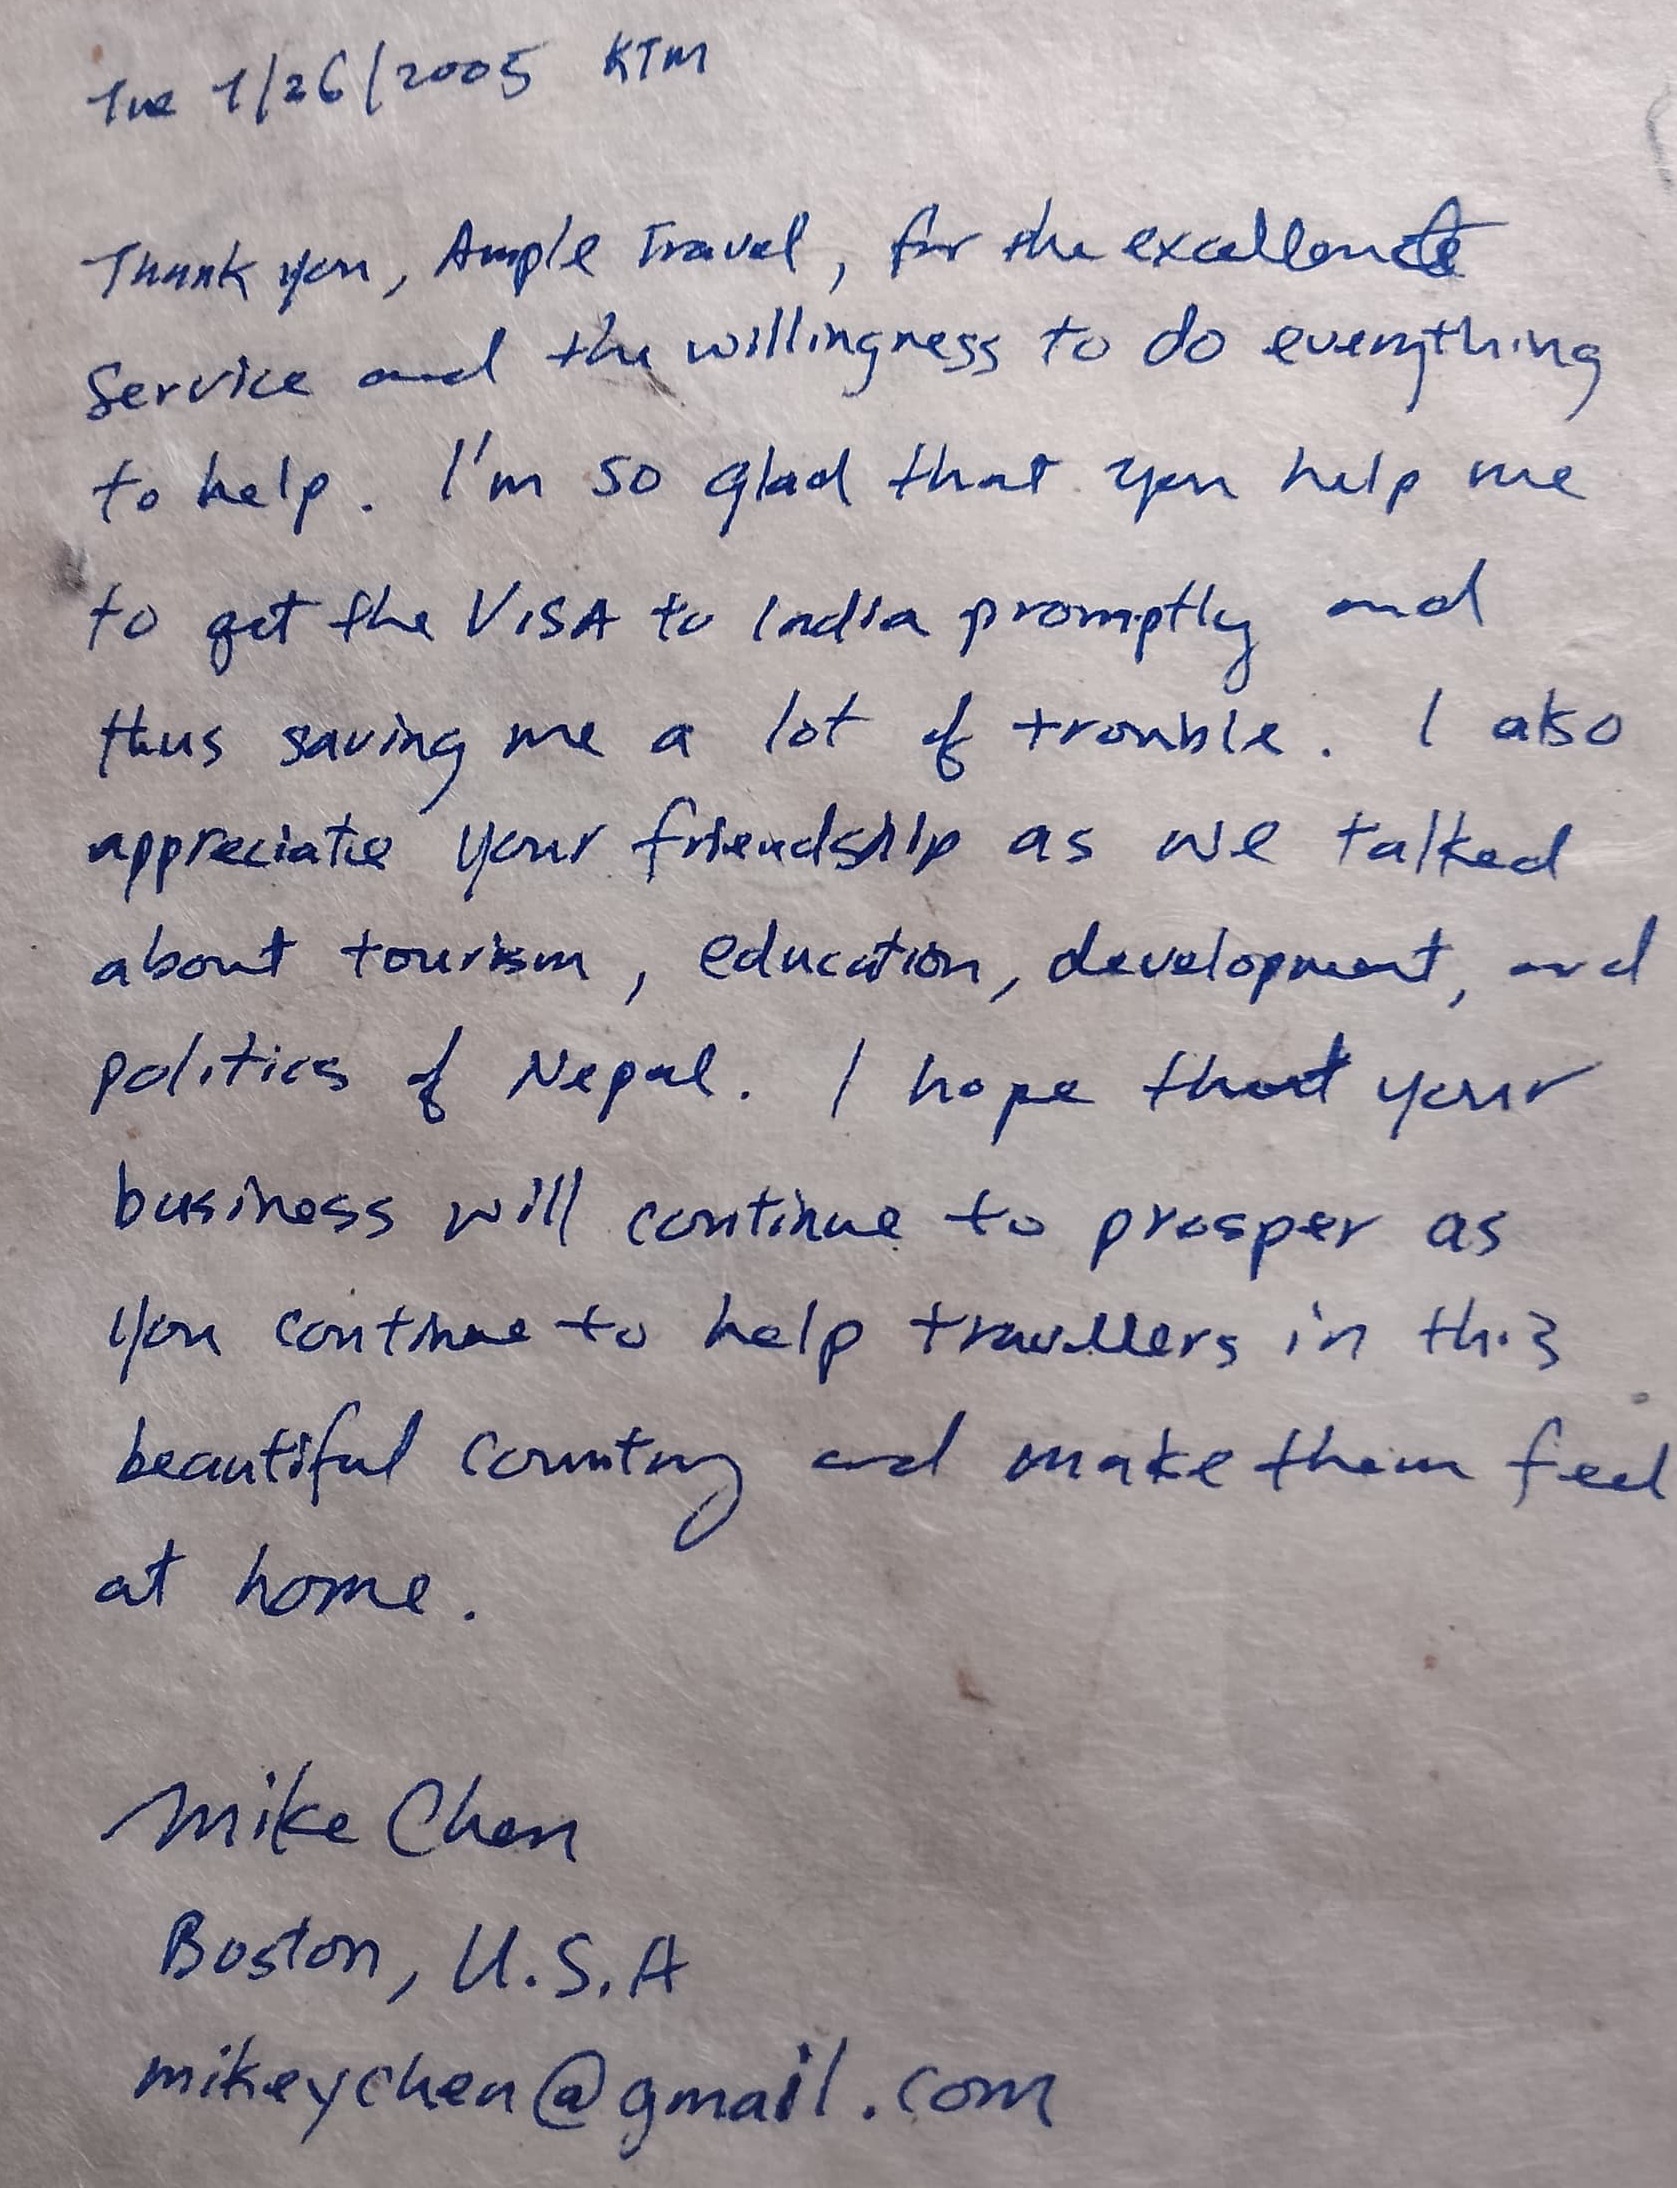 Tue 7/26/2005 KTM
Thank you, Ample Travel, for the excellent
Service and the willingness to do everything
to help. I'm so glad that you help me
to get the VISA to India promptly and
thus saving me a lot of trouble. I also
appreciate your friendship as we talked
about tourism, education, development, and
politics of Nepal. I hope that your
business will continue to prosper as
you continue to help travellers in this
beautiful country and make them feel
at home.
Mike Chen
Boston, U.S.A
mikeychen@gmail.com